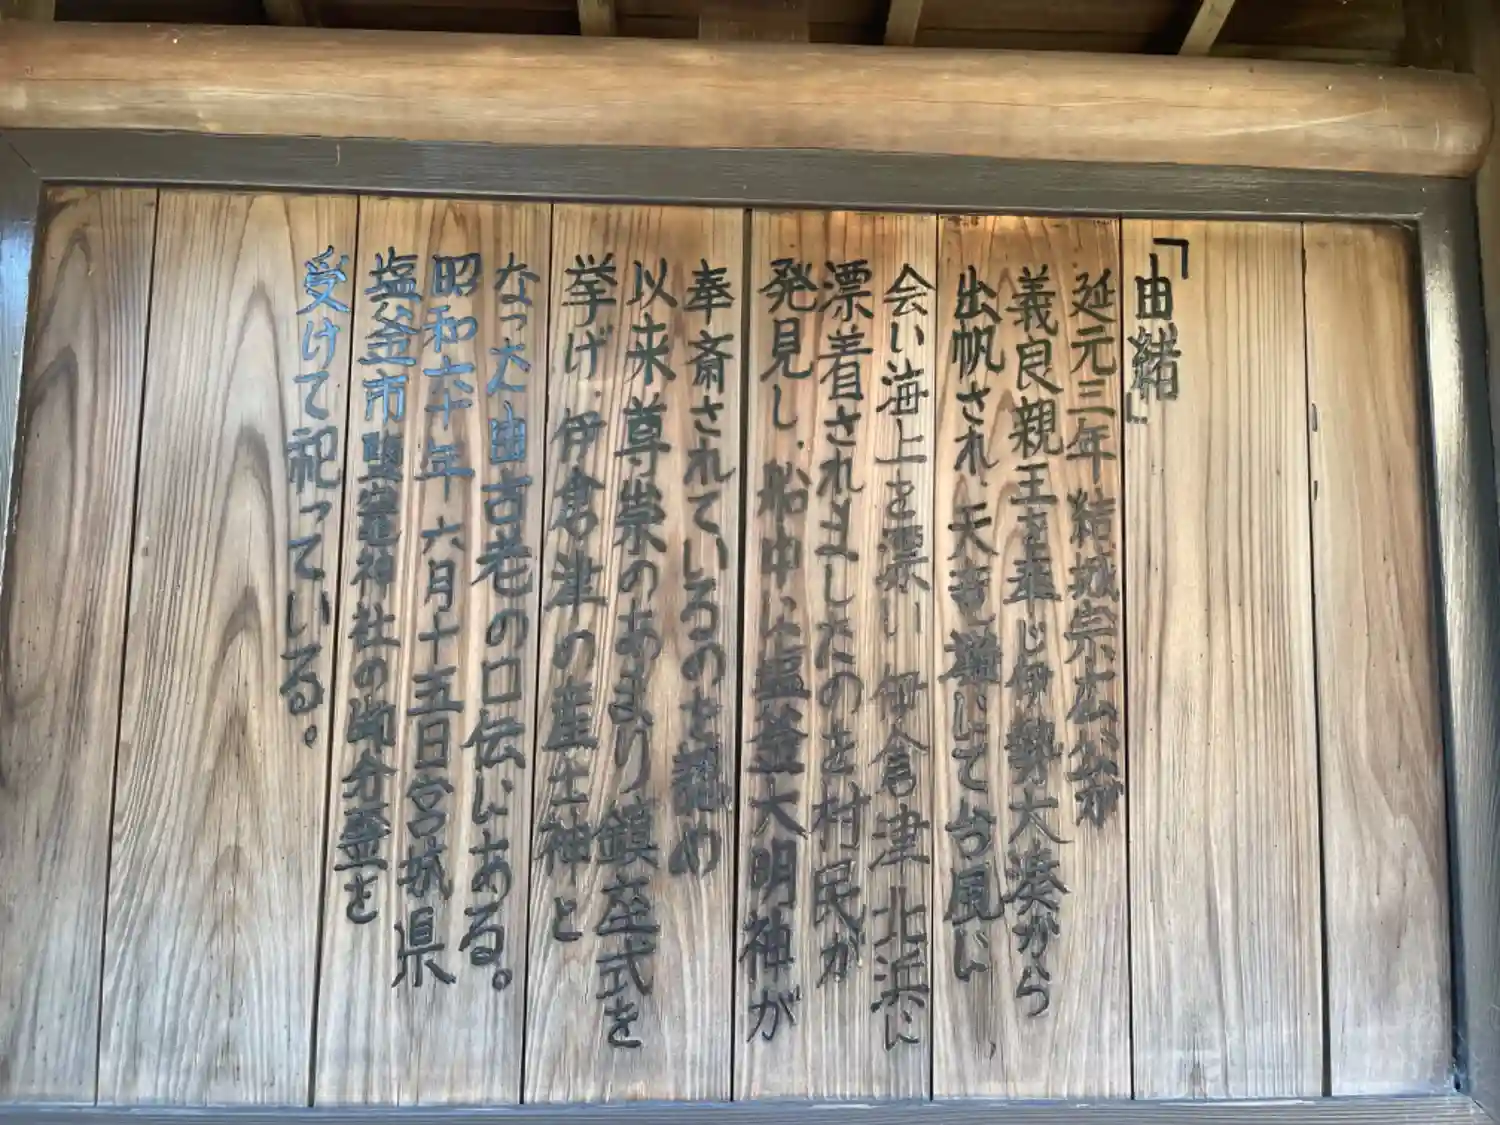 「由緒」
延元三年結城宗広公が
義良親王を奉じ伊勢大湊から
出帆され、天竜灘にて台風に
会い海上を漂い伊倉津北浜に
漂着されましたのを村民が
発見し、船中に塩釜大明神が
奉斎されているのを認め
以来尊崇のあまり鎮座式を
挙げ、伊倉津の産土神と
なった由古老の口伝にある。
昭和六十年六月十五日宮城県
塩釜市鹽竈神社の御分霊を
受けて祀っている。